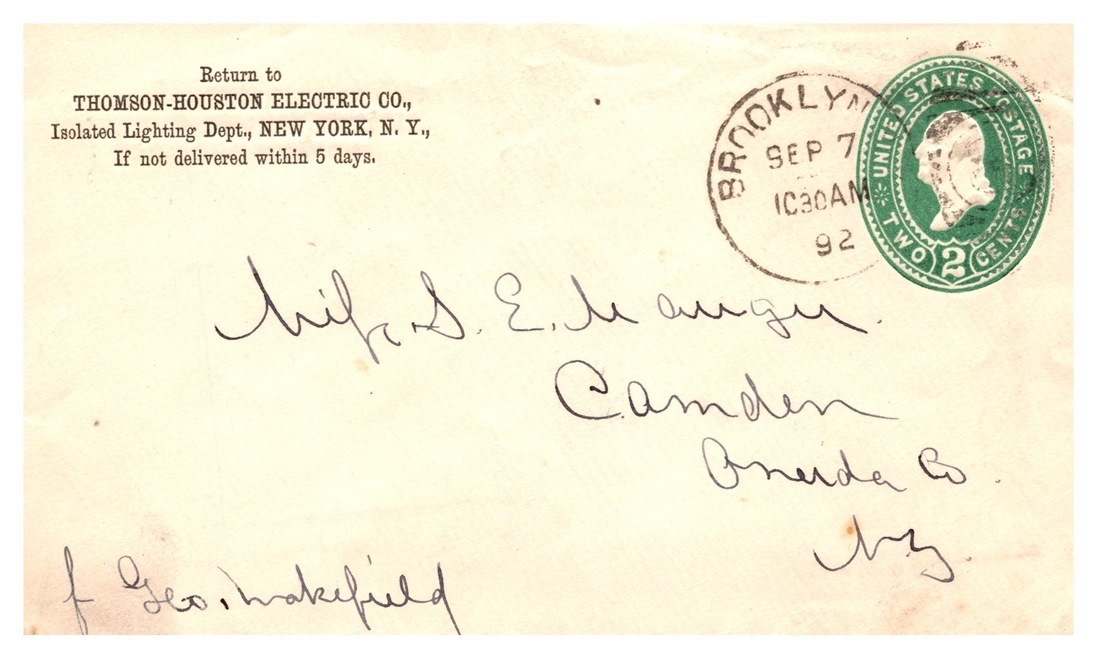 Return to
THOMSON-HOUSTON ELECTRIC CO.,
Isolated Lighting Dept., NEW YORK, N. Y.,
If not delivered within 5 days.
BROOKLYN
SEP 7
1030AM
92
UNITED STATES POSTAGE
TWO 2 CENTS
Miss S. E.
Camden
Oneida Co.
N.Y.
f Geo. Wakefield